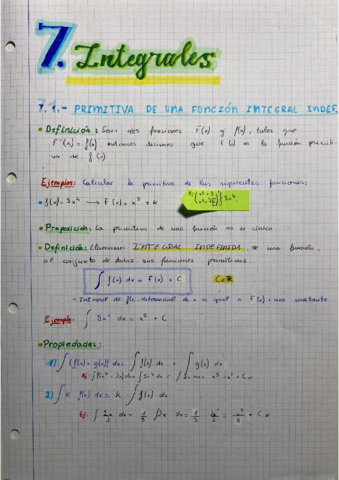 7. Integrales
7.1.- PRIMITIVA DE UNA FUNCIÓN INTEGRAL INDEF.
• Definición: Sean dos funciones F(x) y f(x), tales que
F'(x) = f(x) entonces decimos que F(x) es la función primiti-
va de f(x)
Ejemplos: Calcular la primitiva de las siguientes funciones:
• f(x) = 5x⁴ → F(x) = x⁵ + K
5x⁴
• Proposición: La primitiva de una función no es única.
• Definición: Llamamos INTEGRAL INDEFINIDA, de una función,
al conjunto de todas sus funciones primitivas.
∫ f(x) dx = F(x) + C
C∈ℝ
- Integral de f(x) diferencial de x es igual a F(x) + una constante
Ejemplo: ∫ 5x⁴ dx = x⁵ + C
• Propiedades:
1) ∫ (f(x) + g(x)) dx = ∫ f(x) dx + ∫ g(x) dx
Ej: ∫ (5x⁴ + 2x) dx = ∫ 5x⁴ dx + ∫ 2x dx = x⁵ + x² + C
2) ∫ K f(x) dx = K ∫ f(x) dx
Ej: